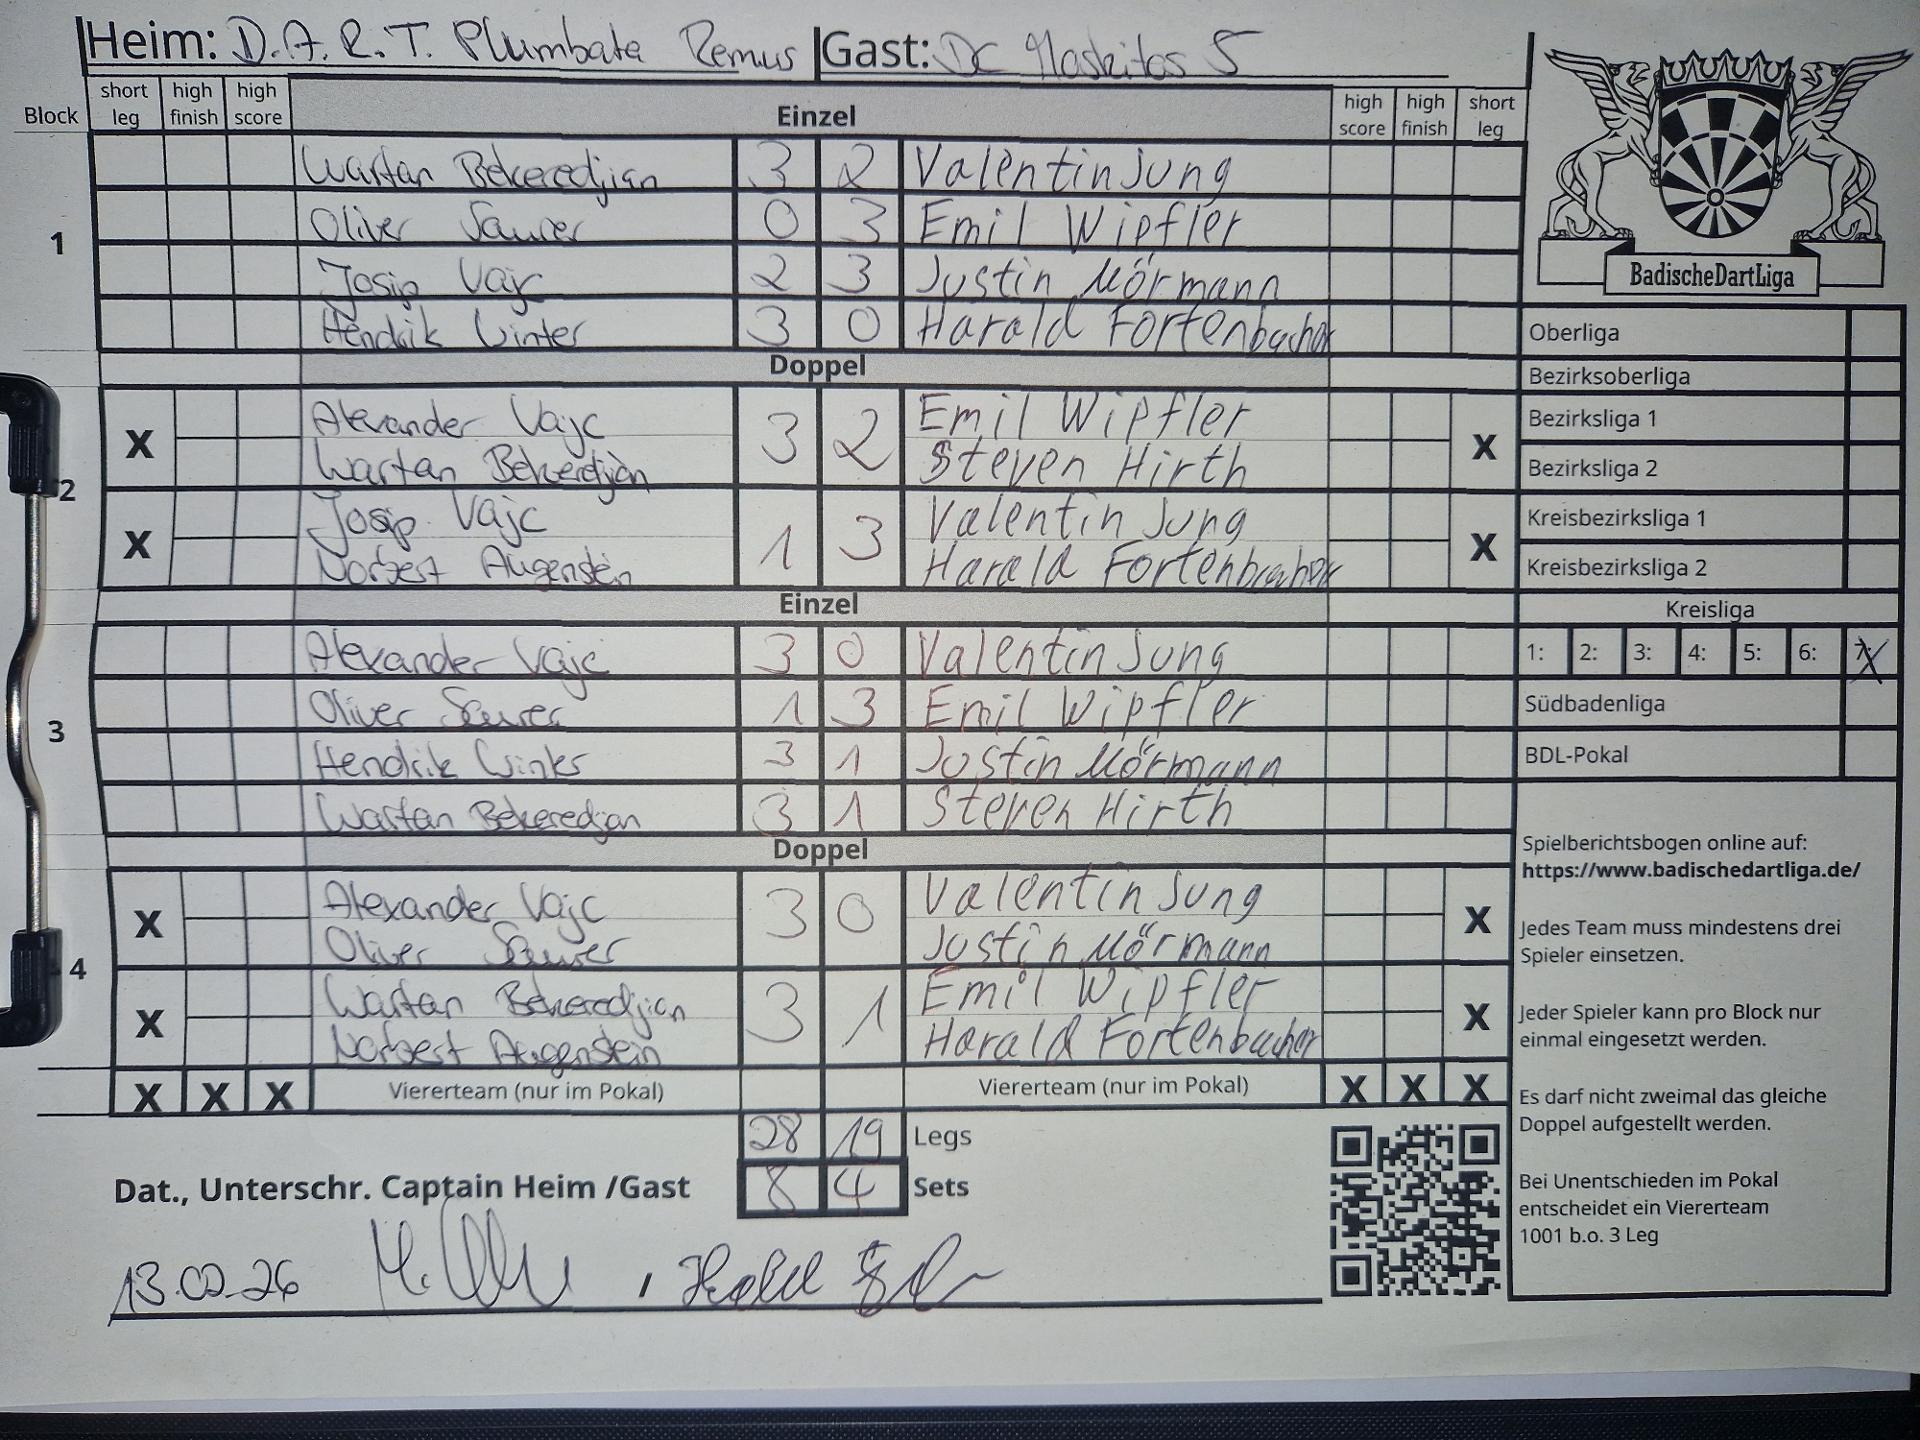 Heim: D.A.R.T. Plumbata Remus Gast: DC Moskitos 5
Block short leg high finish high score Einzel high score high finish short leg
1
Wartan Bekeredjian 3 2 Valentin Jung
Oliver Saurer 0 3 Emil Wipfler
Josip Vajc 2 3 Justin Mörmann
Hendrik Winter 3 0 Harald Fortenbacher
Doppel
2
X Alexander Vajc 3 2 Emil Wipfler X
Wartan Bekeredjian Steven Hirth
X Josip Vajc 1 3 Valentin Jung X
Norbert Augenstein Harald Fortenbacher
Einzel
3
Alexander Vajc 3 0 Valentin Jung
Oliver Saurer 1 3 Emil Wipfler
Hendrik Winter 3 1 Justin Mörmann
Wartan Bekeredjian 3 1 Steven Hirth
Doppel
4
X Alexander Vajc 3 0 Valentin Jung X
Oliver Saurer Justin Mörmann
X Wartan Bekeredjian 3 1 Emil Wipfler X
Norbert Augenstein Harald Fortenbacher
X X X Viererteam (nur im Pokal) Viererteam (nur im Pokal) X X X
28 19 Legs
Dat., Unterschr. Captain Heim /Gast 8 4 Sets
13.02.26
BadischeDartLiga
Oberliga
Bezirksoberliga
Bezirksliga 1
Bezirksliga 2
Kreisbezirksliga 1
Kreisbezirksliga 2
Kreisliga
1: 2: 3: 4: 5: 6: 7: X
Südbadenliga
BDL-Pokal
Spielberichtsbogen online auf:
https://www.badischedartliga.de/
Jedes Team muss mindestens drei
Spieler einsetzen.
Jeder Spieler kann pro Block nur
einmal eingesetzt werden.
Es darf nicht zweimal das gleiche
Doppel aufgestellt werden.
Bei Unentschieden im Pokal
entscheidet ein Viererteam
1001 b.o. 3 Leg